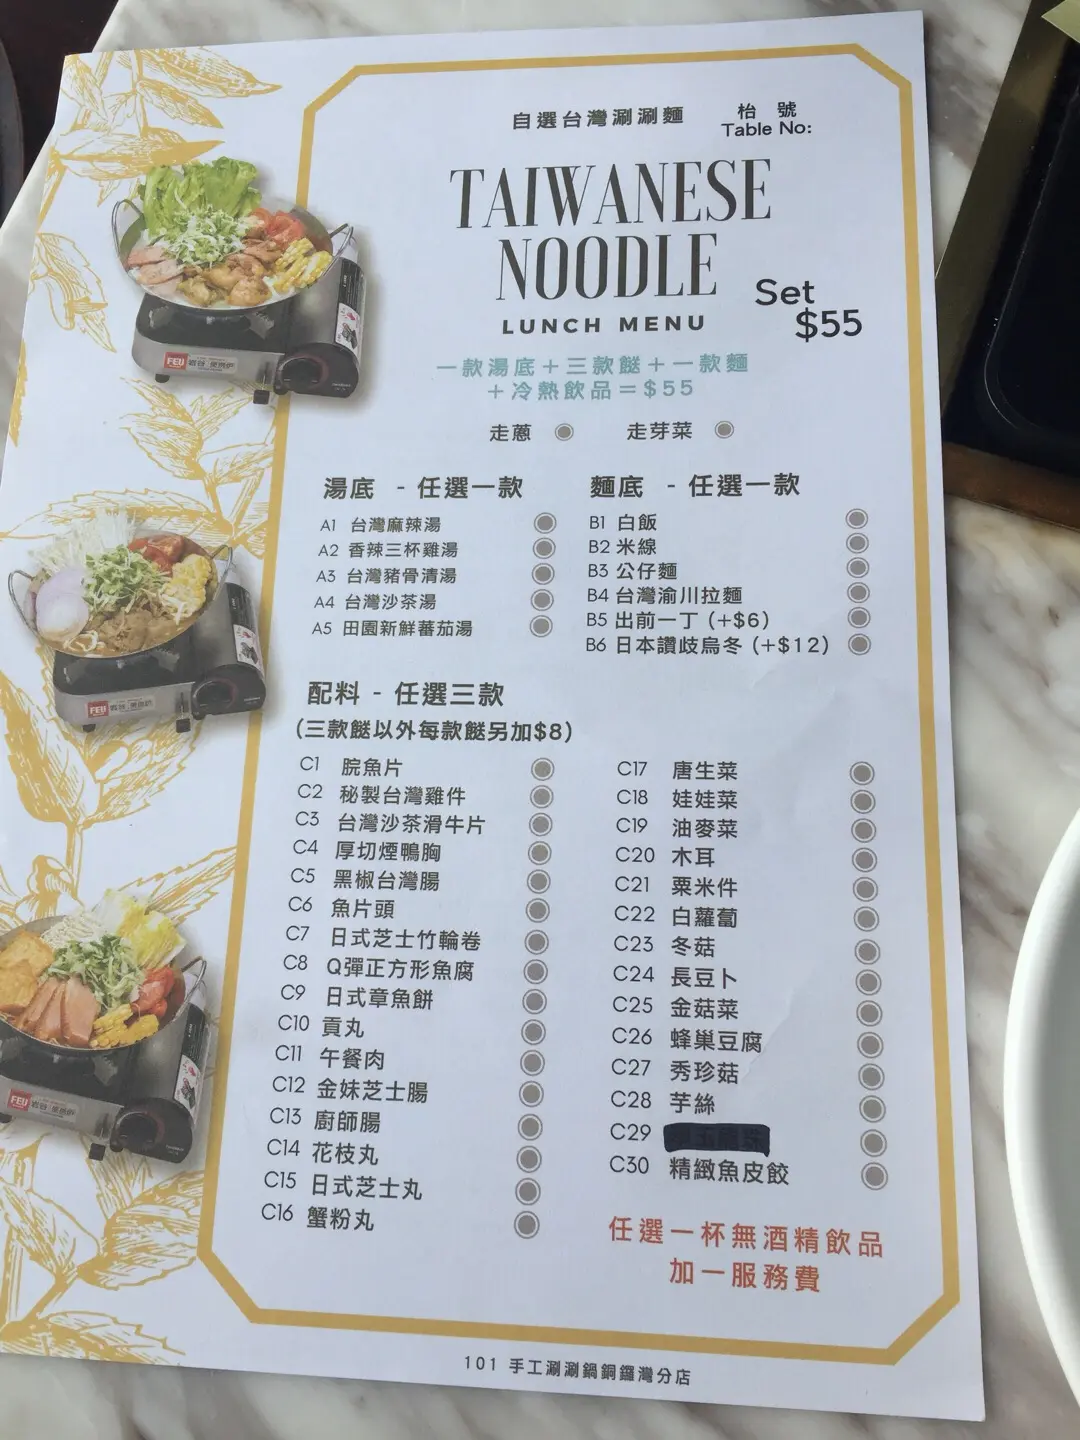 自選台灣涮涮麵
枱 號
Table No:
TAIWANESE
NOODLE
LUNCH MENU
Set
$55
一款湯底＋三款餸＋一款麵
＋冷熱飲品＝$55
走蔥
走芽菜
湯底 - 任選一款
A1 台灣麻辣湯
A2 香辣三杯雞湯
A3 台灣豬骨清湯
A4 台灣沙茶湯
A5 田園新鮮蕃茄湯
麵底 - 任選一款
B1 白飯
B2 米線
B3 公仔麵
B4 台灣渝川拉麵
B5 出前一丁 (+$6)
B6 日本讚歧烏冬 (+$12)
配料 - 任選三款
(三款餸以外每款餸另加$8)
C1 脘魚片
C2 秘製台灣雞件
C3 台灣沙茶滑牛片
C4 厚切煙鴨胸
C5 黑椒台灣腸
C6 魚片頭
C7 日式芝士竹輪卷
C8 Q彈正方形魚腐
C9 日式章魚餅
C10 貢丸
C11 午餐肉
C12 金妹芝士腸
C13 廚師腸
C14 花枝丸
C15 日式芝士丸
C16 蟹粉丸
C17 唐生菜
C18 娃娃菜
C19 油麥菜
C20 木耳
C21 粟米件
C22 白蘿蔔
C23 冬菇
C24 長豆卜
C25 金菇菜
C26 蜂巢豆腐
C27 秀珍菇
C28 芋絲
C29
C30 精緻魚皮餃
任選一杯無酒精飲品
加一服務費
101 手工涮涮鍋銅鑼灣分店
FEU
FEU
FEU